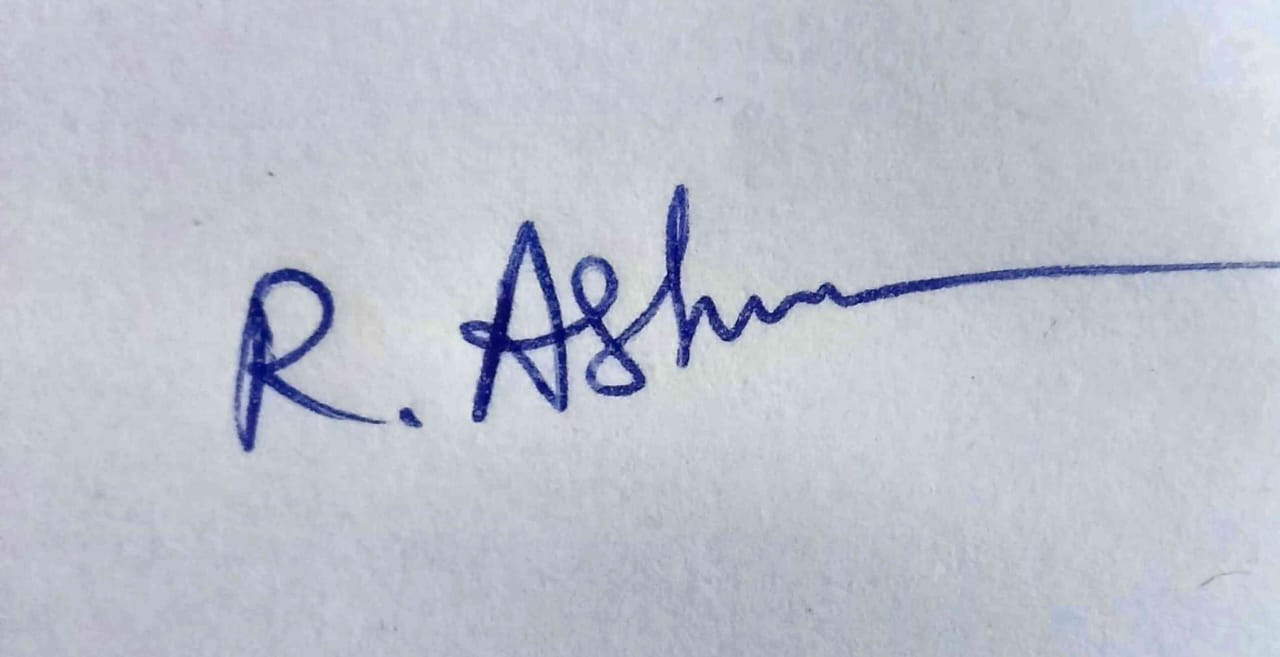 R. Ashw